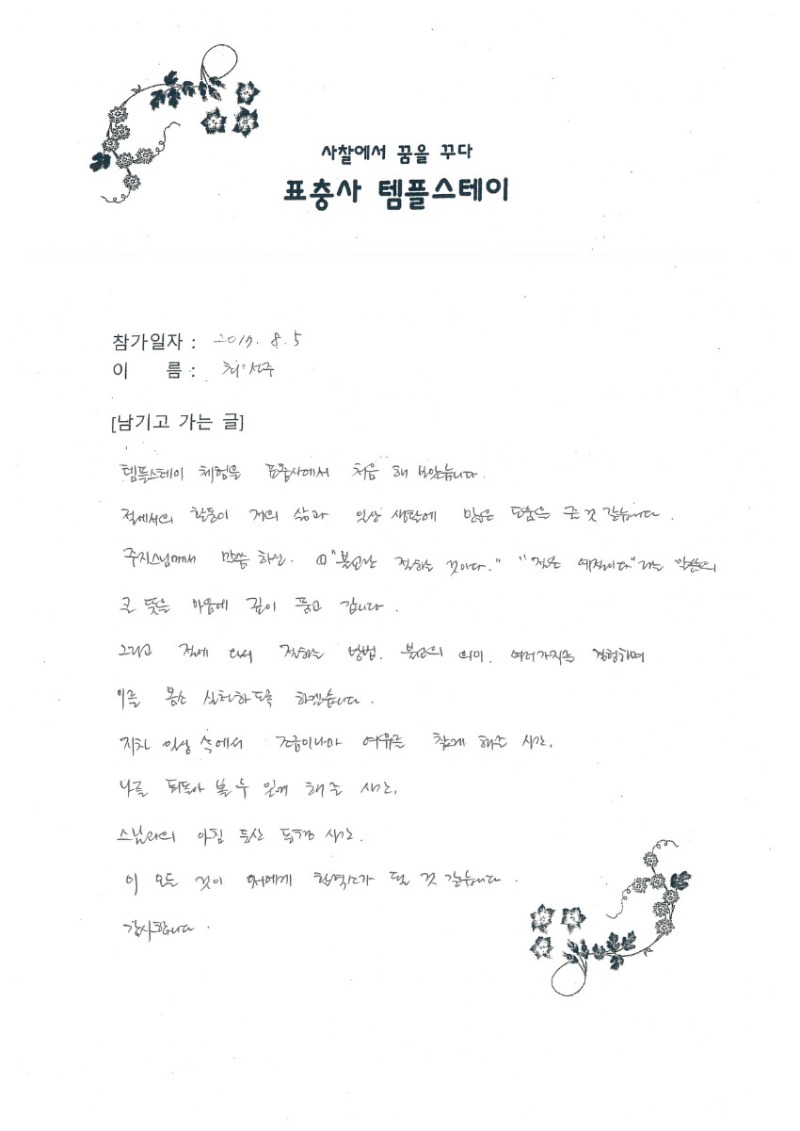 사찰에서 꿈을 꾸다
표충사 템플스테이
참가일자 : 2017. 8. 5
이 름 : 최선주
[남기고 가는 글]
템플스테이 체험을 표충사에서 처음 해 보았습니다.
절에서의 활동이 저의 삶과 일상 생활에 많은 도움을 준 것 같습니다.
주지스님께서 말씀 하신. "불교란 절하는 것이다." "절은 예절이다"라는 말씀의
큰 뜻을 마음에 깊이 품고 갑니다.
그리고 절에 와서 절하는 방법, 불교의 의미, 여러가지를 경험하며
이를 몸소 실천하도록 하겠습니다.
지친 일상 속에서 조금이나마 여유를 찾게 해준 시간,
나를 되돌아 볼 수 있게 해 준 시간,
스님과의 아침 등산 동행 시간.
이 모든 것이 저에게 활력소가 될 것 같습니다.
감사합니다.